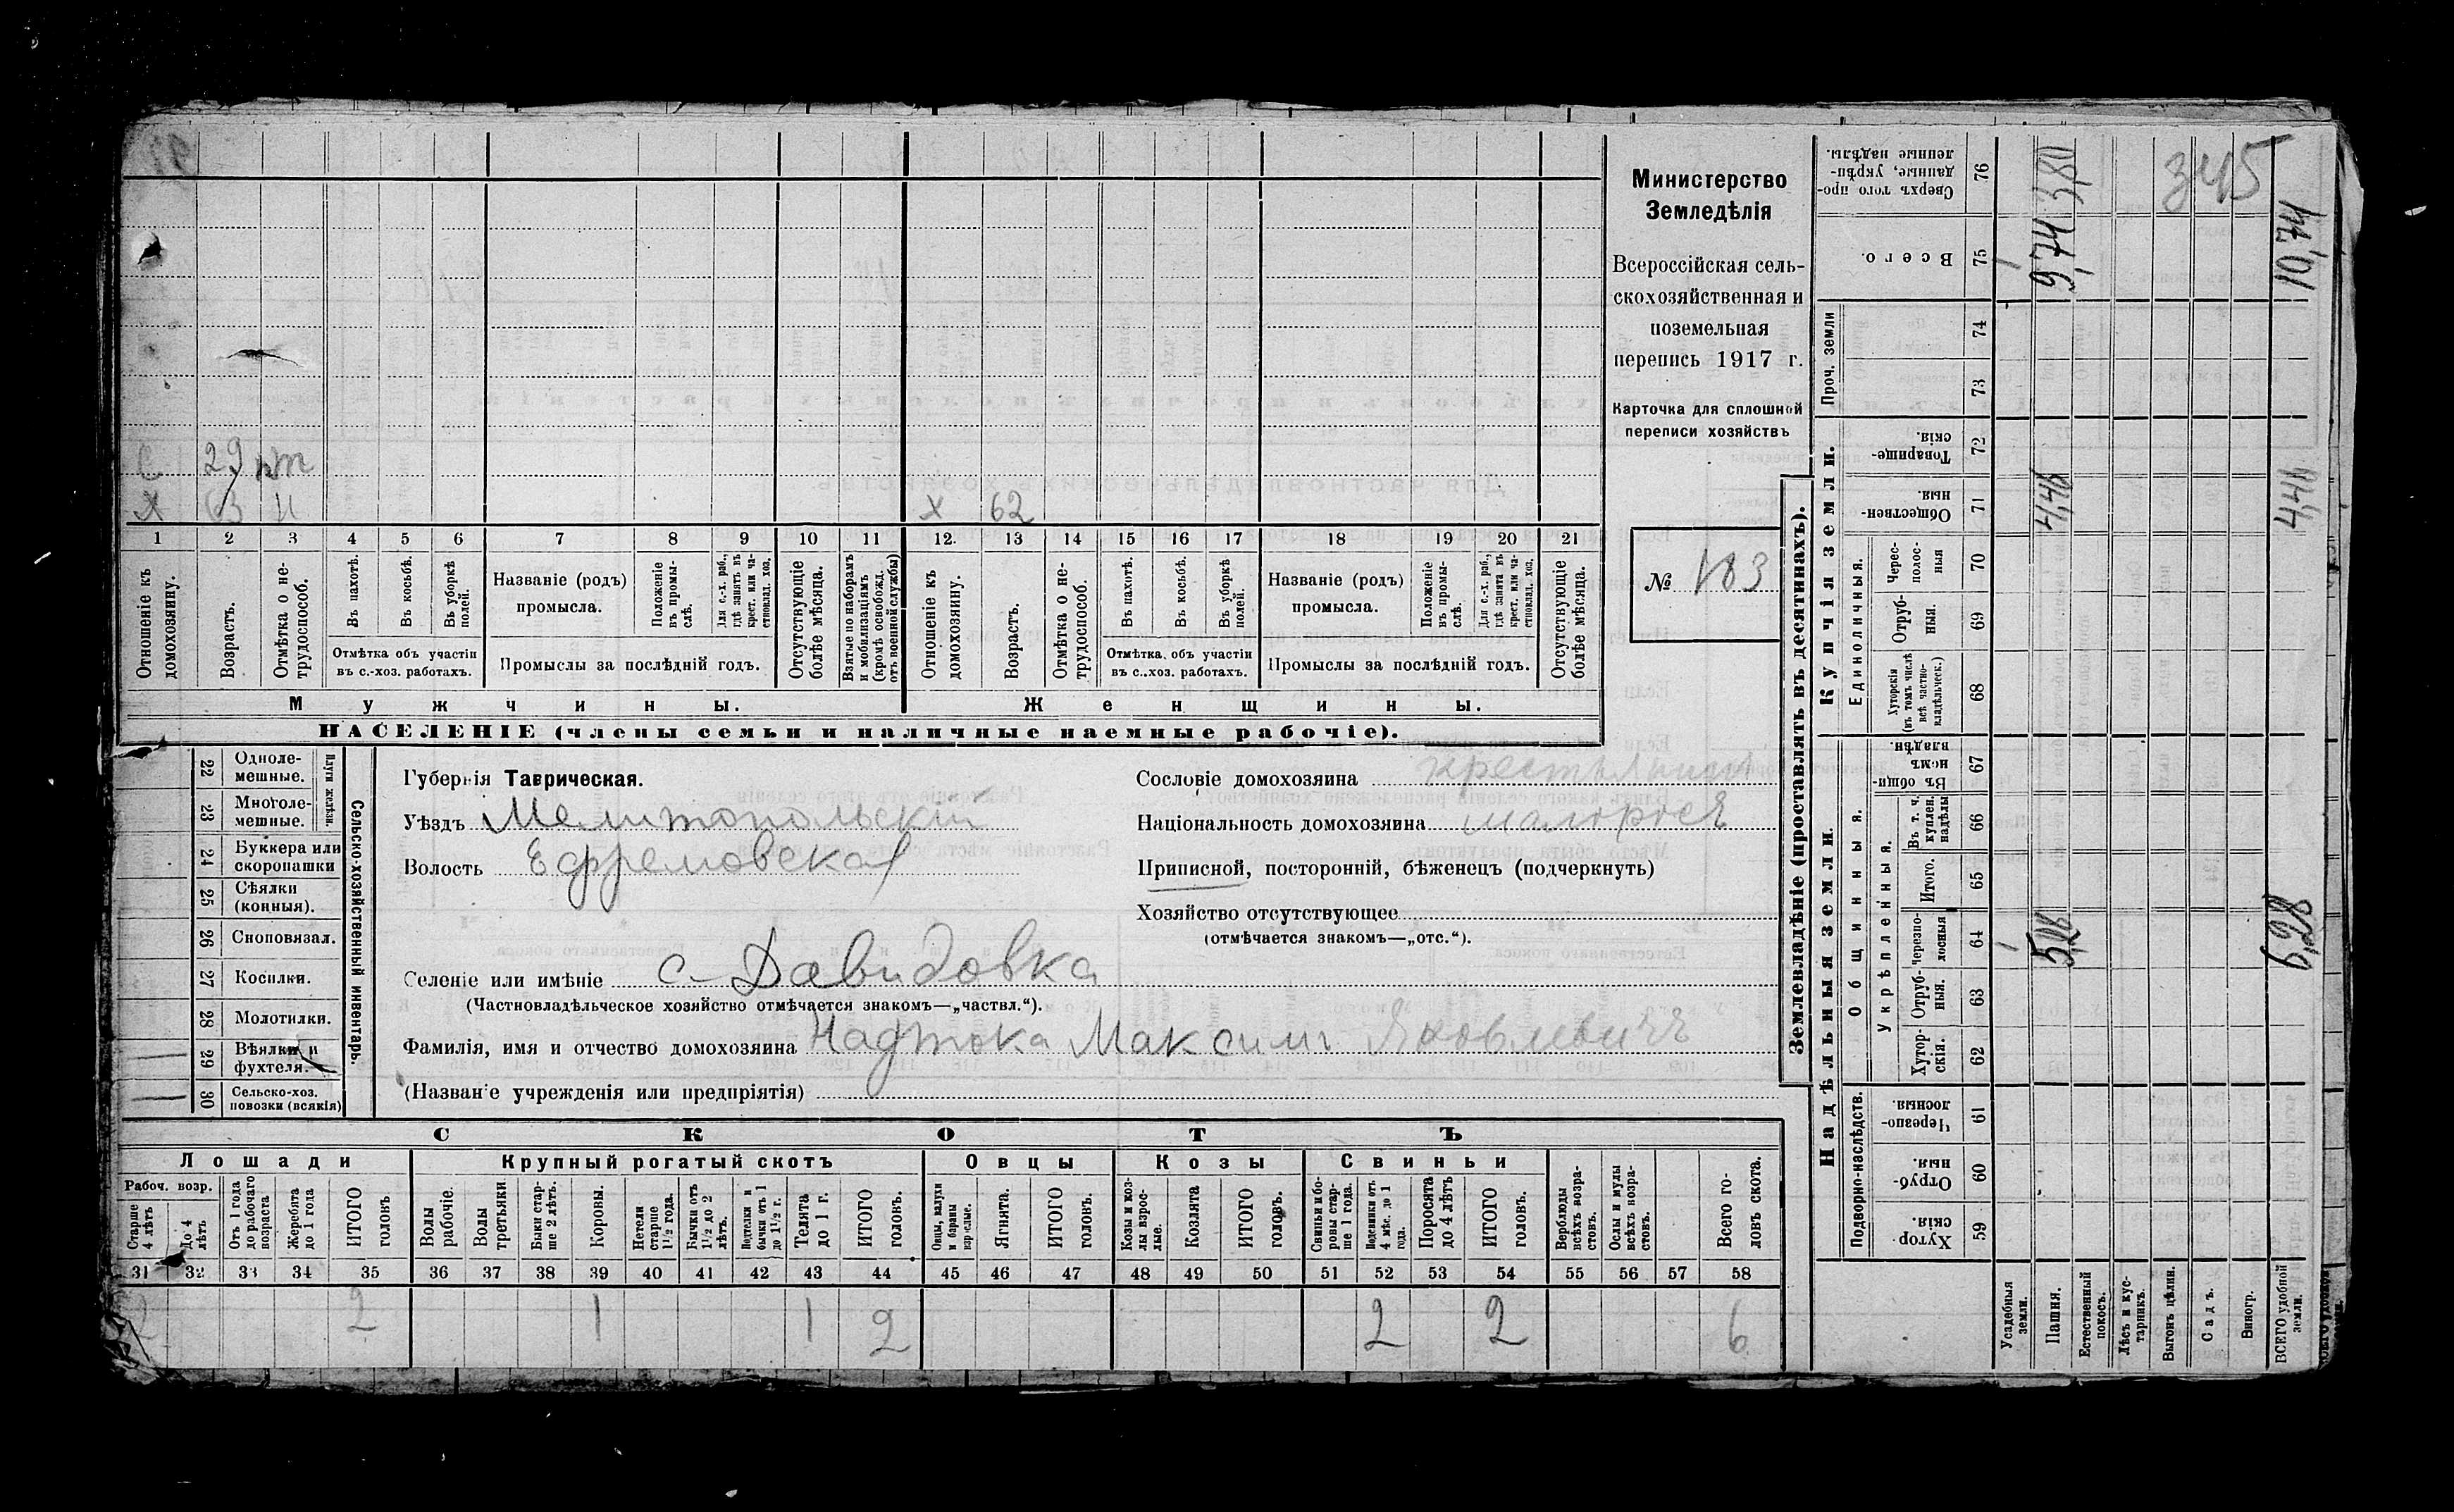 345
С 29 
Х 63 Н Х 62
1 2 3 4 5 6 7 8 9 10 11 12. 13 14 15 16 17 18 19 20 21
Отношеніе къ домохозяину.
Возрастъ.
Отмѣтка о не-трудоспособ.
Въ пахотѣ.
Въ косьбѣ.
Въ уборкѣ полей.
Отмѣтка объ участіи
въ с.-хоз. работахъ.
Названіе (родъ)
промысла.
Положеніе въ промы-слѣ.
Для с.-х. раб., гдѣ занятъ въ крест. или ча-стновлад. хоз.
Промыслы за послѣдній годъ.
Отсутствующіе болѣе мѣсяца.
Взятые по наборамъ и мобилизаціямъ (кромѣ освобожд. отъ военной службы)
Отношеніе къ домохозяину.
Возрастъ.
Отмѣтка о не-трудоспособ.
Въ пахотѣ.
Въ косьбѣ.
Въ уборкѣ полей.
Отмѣтка объ участіи
въ с.-хоз. работахъ.
Названіе (родъ)
промысла.
Положеніе въ промы-слѣ.
Для с.-х. раб., гдѣ занята въ крест. или ча-стновлад. хоз.
Промыслы за послѣдній годъ.
Отсутствующіе болѣе мѣсяца.
Мужчины. Женщины.
НАСЕЛЕНІЕ (члены семьи и наличные наемные рабочіе).
Министерство
Земледѣлія
Всероссійская сель-
скохозяйственная и
поземельная
перепись 1917 г.
Карточка для сплошной
переписи хозяйствъ
№ 183
Сельско-хозяйственный инвентарь.
Плуги желѣзн.
22 Одноле-мешные.
23 Многоле-мешные.
24 Буккера или скоропашки
25 Сѣялки (конныя).
26 Сноповязал.
27 Косилки.
28 Молотилки.
29 Вѣялки и фухтеля.
30 Сельско-хоз. повозки (всякія)
Губернія Таврическая.
Уѣздъ Мелитопольскій
Волость Ефремовская
Селеніе или имѣніе с. Давидовка
(Частновладѣльческое хозяйство отмѣчается знакомъ—„частвл.“).
Фамилія, имя и отчество домохозяина Надтока Максимъ Яковлевичъ
(Названіе учрежденія или предпріятія)
Сословіе домохозяина крестьянин
Національность домохозяина малоросъ
Приписной, посторонній, бѣженецъ (подчеркнуть)
Хозяйство отсутствующее
(отмѣчается знакомъ—„отс.“).
СКОТЪ
Лошади Крупный рогатый скотъ Овцы Козы Свиньи
Рабоч. возр.
Старше 4 лѣтъ
До 4 лѣтъ
Отъ 1 года до рабочаго возраста
Жеребята до 1 года
ИТОГО головъ
Волы рабочіе.
Волы третьяки.
Быки стар-ше 2 лѣтъ.
Коровы.
Нетели старше 1½ года.
Бычки отъ 1½ до 2 лѣтъ.
Подтелки и бычки отъ 1 до 1½ г.
Телята до 1 г.
ИТОГО головъ.
Овцы, валухи и бараны взрослые.
Ягнята.
ИТОГО головъ.
Козы и коз-лы взрос-лые.
Козлята
ИТОГО головъ.
Свиньи и бо-ровы стар-ше 1 года.
Подсвинки отъ 4 мѣс. до 1 года.
Поросята до 4 лѣтъ
ИТОГО головъ.
Верблюды всѣхъ возра-стовъ.
Ослы и мулы всѣхъ возра-стовъ.
Всего го-ловъ скота.
31 32 33 34 35 36 37 38 39 40 41 42 43 44 45 46 47 48 49 50 51 52 53 54 55 56 57 58
2 2 1 1 2 2 2 6
Землевладѣніе (проставлять въ десятинахъ).
Надѣльныя земли. Купчія земли.
Подворно-наслѣдств.
Общинныя.
Укрѣпленныя.
Единоличныя.
Проч. земли
Хутор-скія. 59
Отруб-ныя. 60
Черезпо-лосныя. 61
Хутор-скія. 62
Отруб-ныя. 63
Черезпо-лосныя 64
Итого. 65
Въ т. ч. куплен. надѣлы 66
Въ общин-номъ владѣн. 67
Хуторскія (въ томъ числѣ всѣ частно-владѣльческ.) 68
Отруб-ныя. 69
Черес-полос-ныя 70
Обществен-ныя. 71
Товарище-скія. 72
73
74
Всего. 75
Сверхъ того про-данные, укрѣп-ленные надѣлы. 76
Усадебныя земли. 1 1
Пашня. 4,46 9,74 3,80
Естественный покосъ.
Лѣсъ и кус-тарникъ.
Выгонъ цѣлин.
Садъ.
Виногр.
ВСЕГО удобной земли. 6,28 10,74